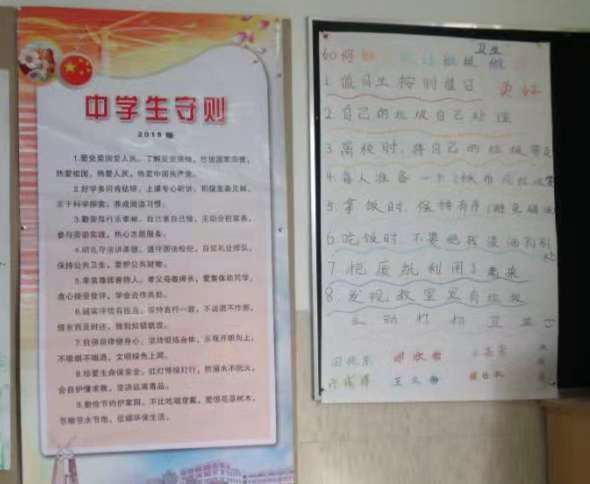 中学生守则
2015 版
1.爱党爱国爱人民。了解党史国情，珍视国家荣誉，
热爱祖国，热爱人民，热爱中国共产党。
2.好学多问肯钻研。上课专心听讲，积极发表见解，
乐于科学探索，养成阅读习惯。
3.勤劳笃行乐奉献。自己事自己做，主动分担家务，
参与劳动实践，热心志愿服务。
4.明礼守法讲美德。遵守国法校纪，自觉礼让排队，
保持公共卫生，爱护公共财物。
5.孝亲尊师善待人。孝父母敬师长，爱集体助同学，
虚心接受批评，学会合作共处。
6.诚实守信有担当。保持言行一致，不说谎不作弊，
借东西及时还，做到知错就改。
7.自强自律健身心。坚持锻炼身体，乐观开朗向上，
不吸烟不喝酒，文明绿色上网。
8.珍爱生命保安全。红灯停绿灯行，防溺水不玩火，
会自护懂求救，坚决远离毒品。
9.勤俭节约护家园。不比吃喝穿戴，爱惜花草树木，
节粮节水节电，低碳环保生活。
卫生
如何 班级
1 值日生按时值日
2 自己的垃圾自己处理
3 离校时，将自己的垃圾带走
4 每人准备一个
5 拿饭时，保持有序
6 吃饭时，不要把
7 把废纸利用起来
8 发现教室里有垃圾
主动打扫卫生